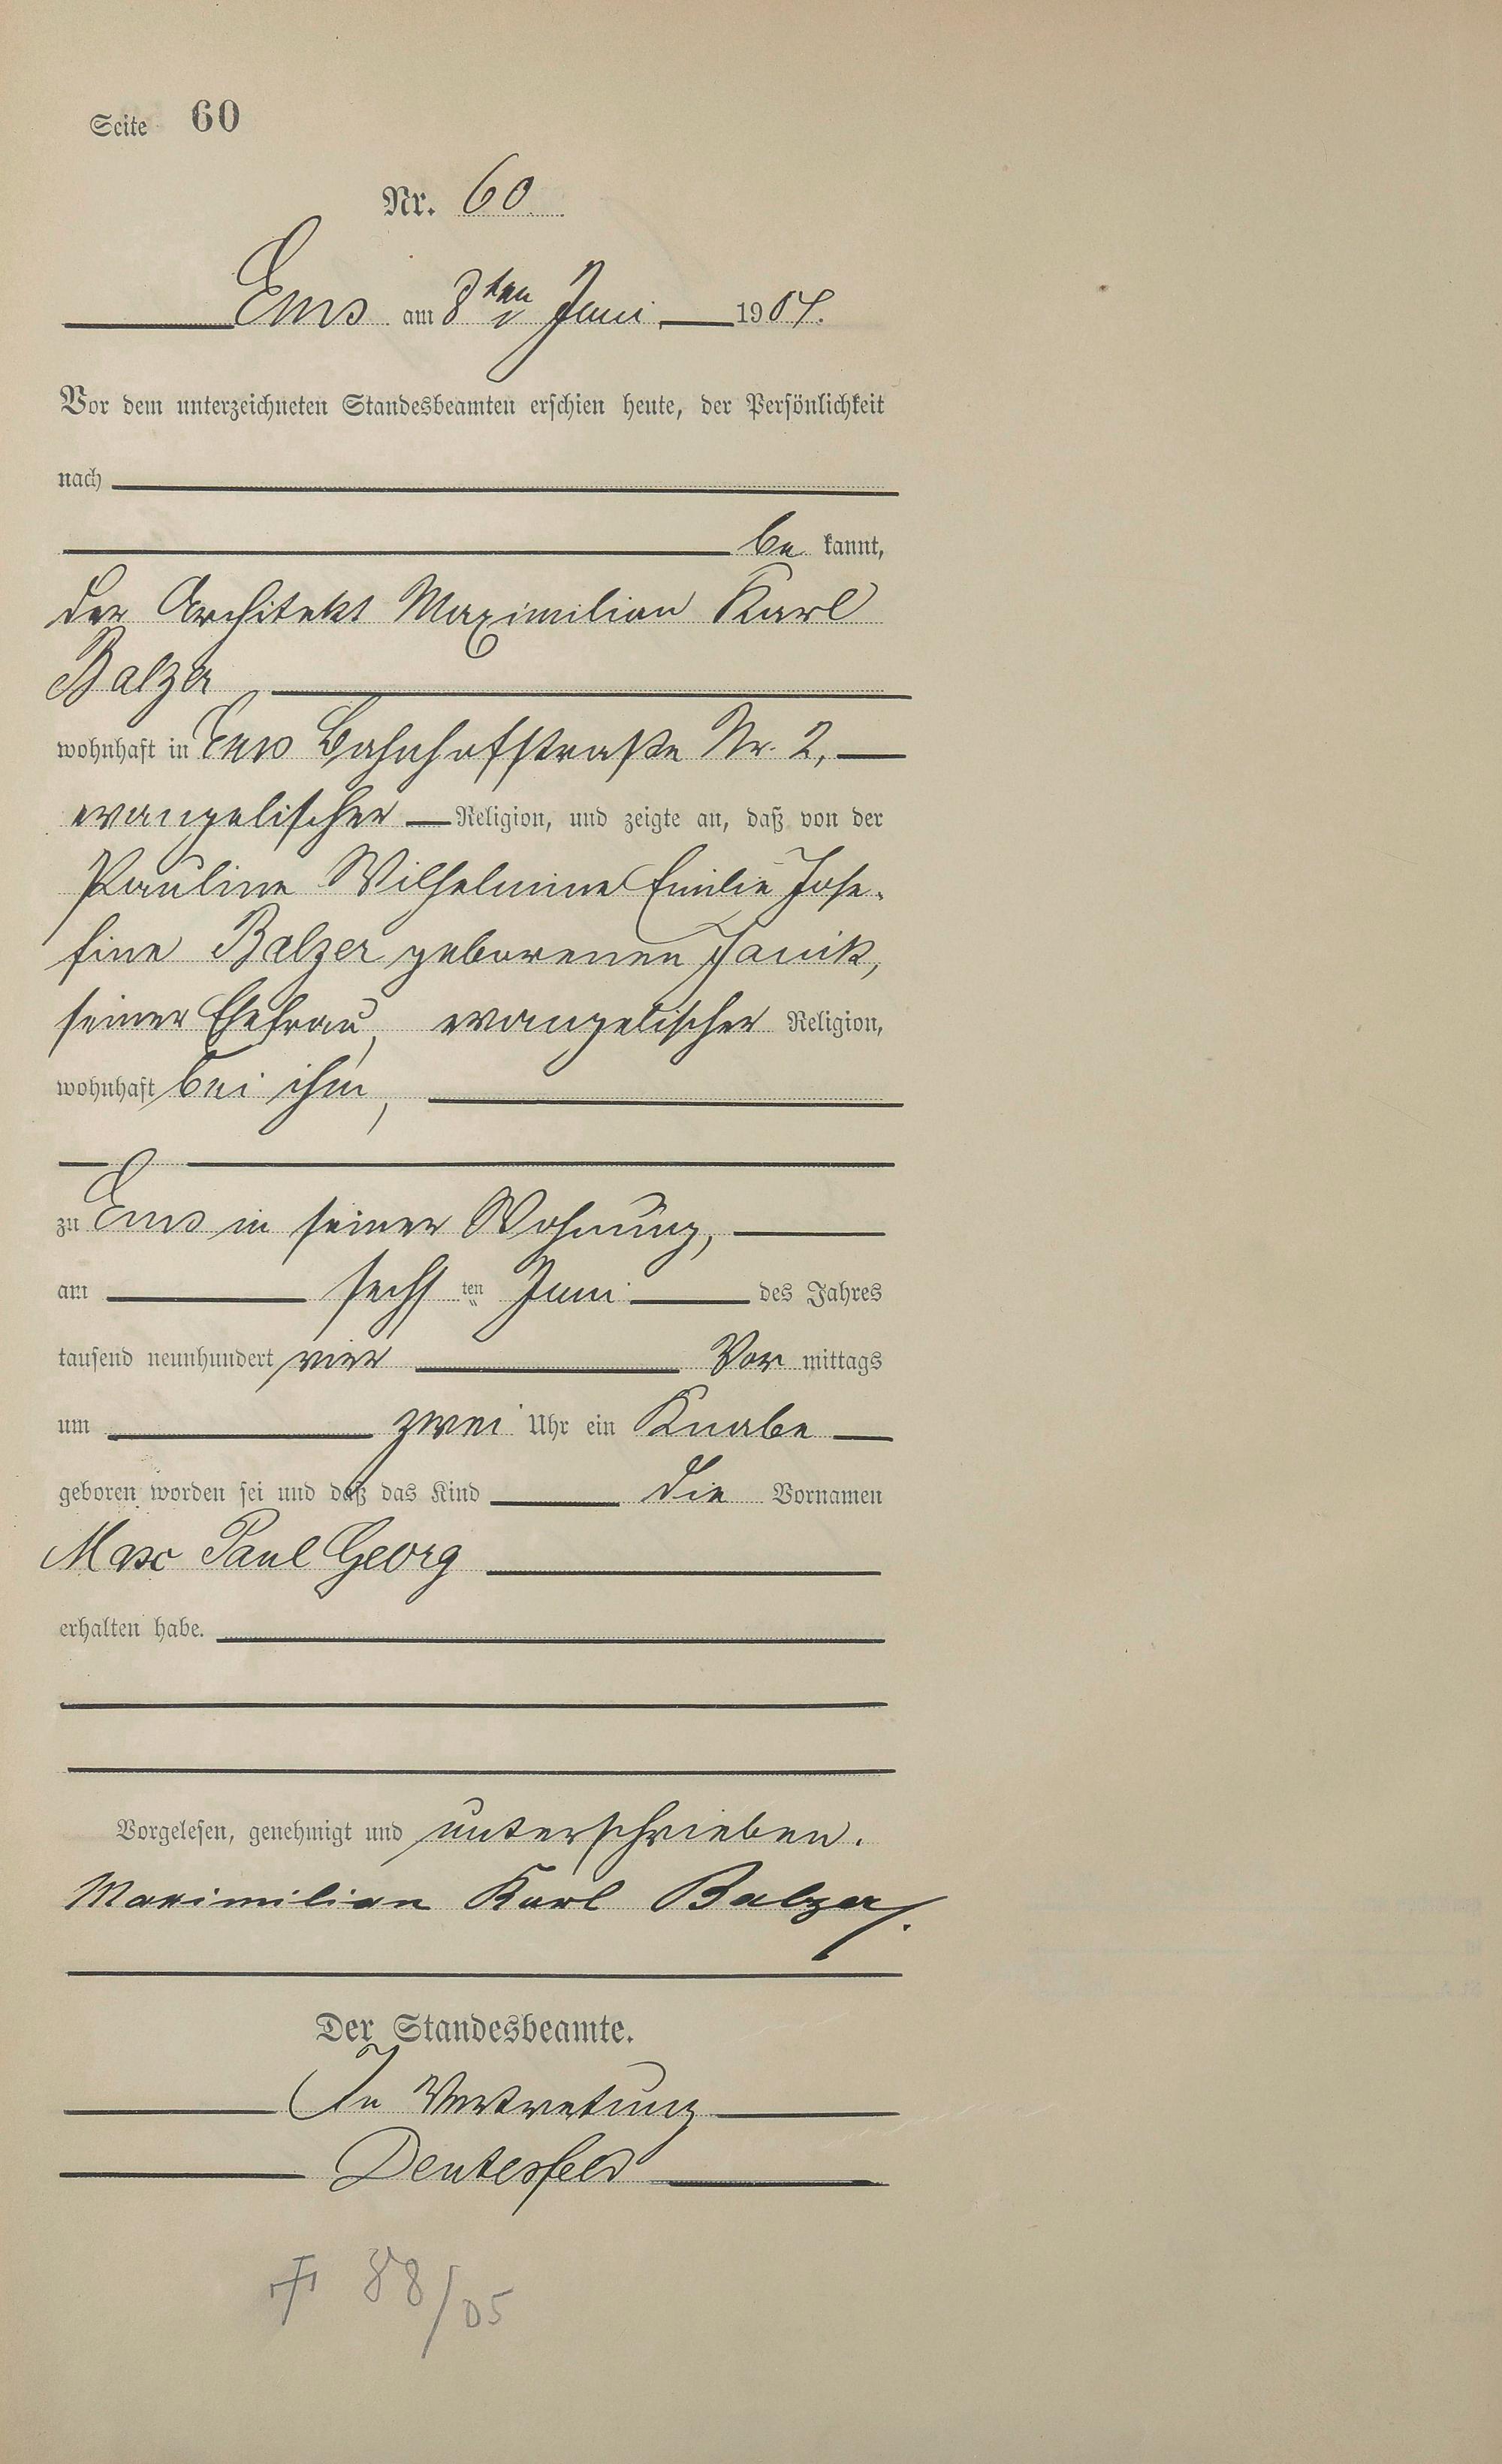 Seite 60
Nr. 60
Ems am 8ten Juni 1904.
Vor dem unterzeichneten Standesbeamten erschien heute, der Persönlichkeit
nach
be kannt,
der Architekt Maximilian Karl
Balzer
wohnhaft in Ems Bahnhofstraße Nr. 2,
evangelischer Religion, und zeigte an, daß von der
Pauline Wilhelmine Emilie Jose-
fine Balzer geborenen Janik,
seiner Ehefrau, evangelischer Religion,
wohnhaft bei ihm,
zu Ems in seiner Wohnung,
am sechs ten Juni des Jahres
tausend neunhundert vier Vor mittags
um zwei Uhr ein Knabe
geboren worden sei und daß das Kind die Vornamen
Max Paul Georg
erhalten habe.
Vorgelesen, genehmigt und unterschrieben.
Maximilian Karl Balzer.
Der Standesbeamte.
In Vertretung
88/05